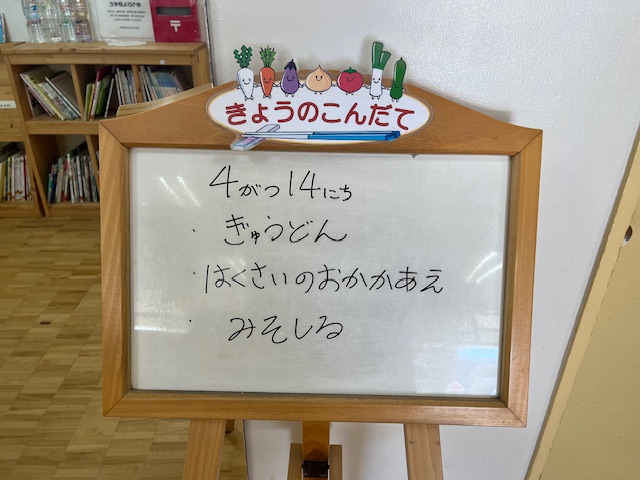 きょうのこんだて
4がつ14にち
・ぎゅうどん
・はくさいのおかかあえ
・みそしる
〒